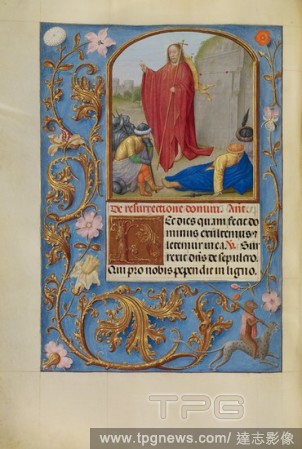 De resurrectione domini. Ant.
Ec dies quam fecit do
minus exultemus &
letemur in ea. V. Sur
rexit dns de sepulcro.
Qui pro nobis pependit in ligno.
TPG
www.tpgnews.com/ 達志影像